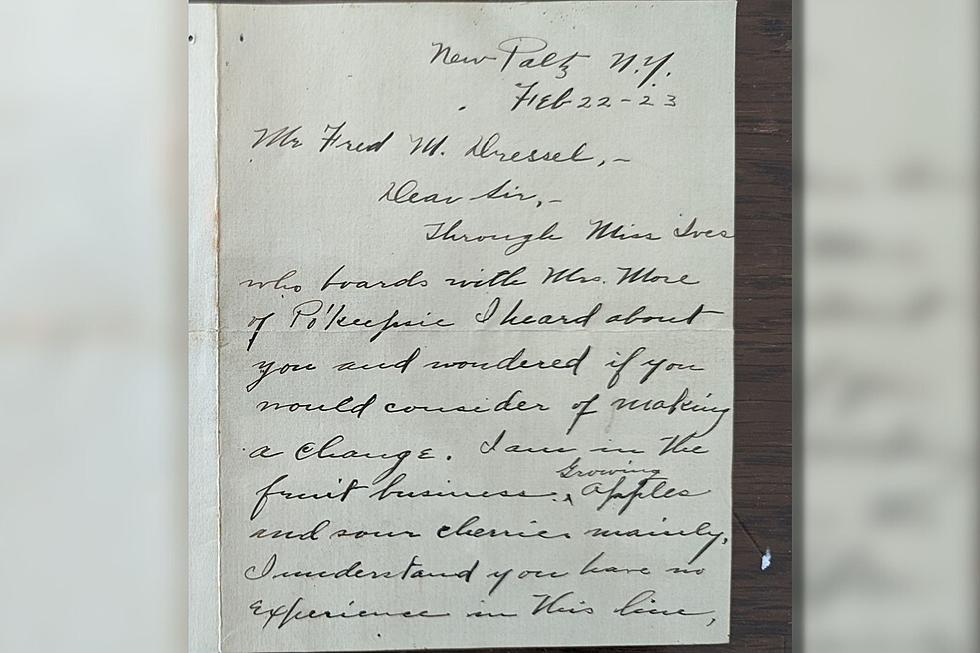 New Paltz N.Y.
Feb 22-23
Mr Fred M. Dressel,-
Dear Sir,-
Through Miss Ives
who boards with Mrs. More
of Po'keepsie I heard about
you and wondered if you
would consider of making
a change. I am in the
Growing
fruit business. ‸ Apples
and sour cherries mainly.
I understand you have no
experience in this line,